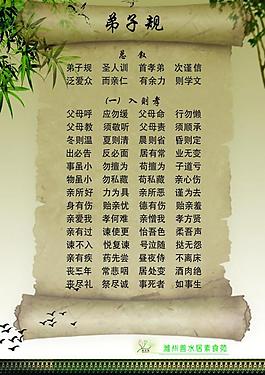 弟子规
总叙
弟子规 圣人训 首孝弟 次谨信
泛爱众 而亲仁 有余力 则学文
(一) 入则孝
父母呼 应勿缓 父母命 行勿懒
父母教 须敬听 父母责 须顺承
冬则温 夏则凊 晨则省 昏则定
出必告 反必面 居有常 业无变
事虽小 勿擅为 苟擅为 子道亏
物虽小 勿私藏 苟私藏 亲心伤
亲所好 力为具 亲所恶 谨为去
身有伤 贻亲忧 德有伤 贻亲羞
亲爱我 孝何难 亲憎我 孝方贤
亲有过 谏使更 怡吾色 柔吾声
谏不入 悦复谏 号泣随 挞无怨
亲有疾 药先尝 昼夜侍 不离床
丧三年 常悲咽 居处变 酒肉绝
丧尽礼 祭尽诚 事死者 如事生
潍州善水居素食苑